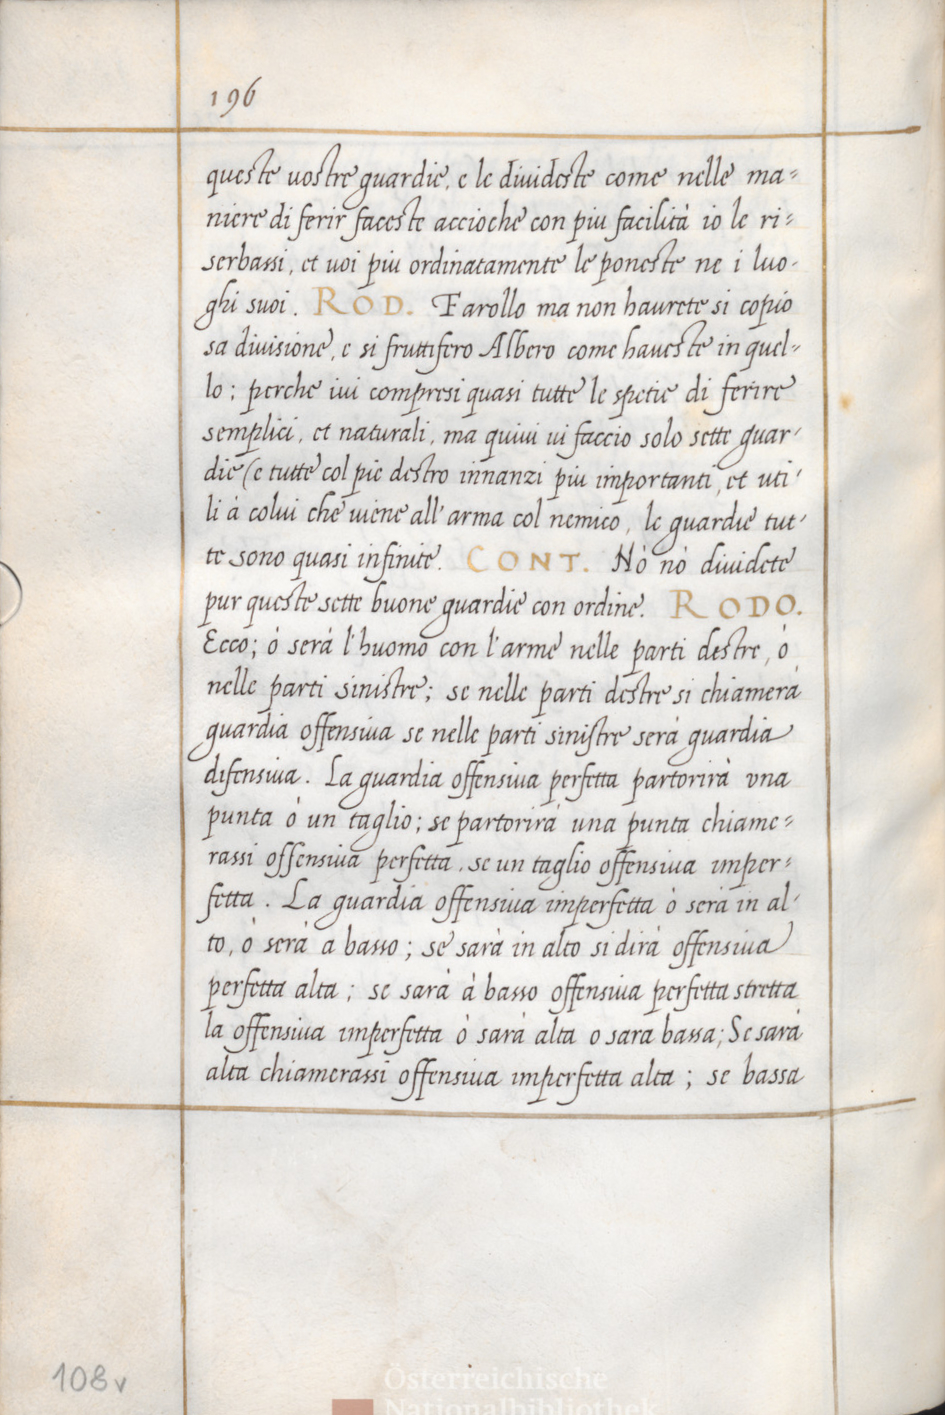 196
queste uostre guardie, e le diuideste come nelle ma=
niere di ferir faceste accioche con piu facilità io le ri=
serbassi, et uoi piu ordinatamente le poneste ne i luo-
ghi suoi. ROD. Farollo ma non haurete si copio
sa diuisione, e si fruttifero Albero come haueste in quel=
lo; perche iui compresi quasi tutte le spetie di ferire
semplici, et naturali, ma quiui ui faccio solo sette guar-
die (e tutte col pie destro innanzi piu importanti, et uti-
li à colui che uiene all'arma col nemico, le guardie tut-
te sono quasi infinite. CONT. Nò nò diuidete
pur queste sette buone guardie con ordine. RODO.
Ecco; ò serà l'huomo con l'arme nelle parti destre, ò
nelle parti sinistre; se nelle parti destre si chiamerà
guardia offensiua se nelle parti sinistre serà guardia
difensiua. La guardia offensiua perfetta partorirà vna
punta ò un taglio; se partorirà una punta chiame=
rassi offensiua perfetta, se un taglio offensiua imper=
fetta. La guardia offensiua imperfetta ò serà in al-
to, ò serà a basso; se sarà in alto si dirà offensiua
perfetta alta; se sarà à basso offensiua perfetta stretta
la offensiua imperfetta ò sarà alta o sara bassa; Se sarà
alta chiamerassi offensiua imperfetta alta; se bassa
108v
Österreichische
Nationalbibliothek